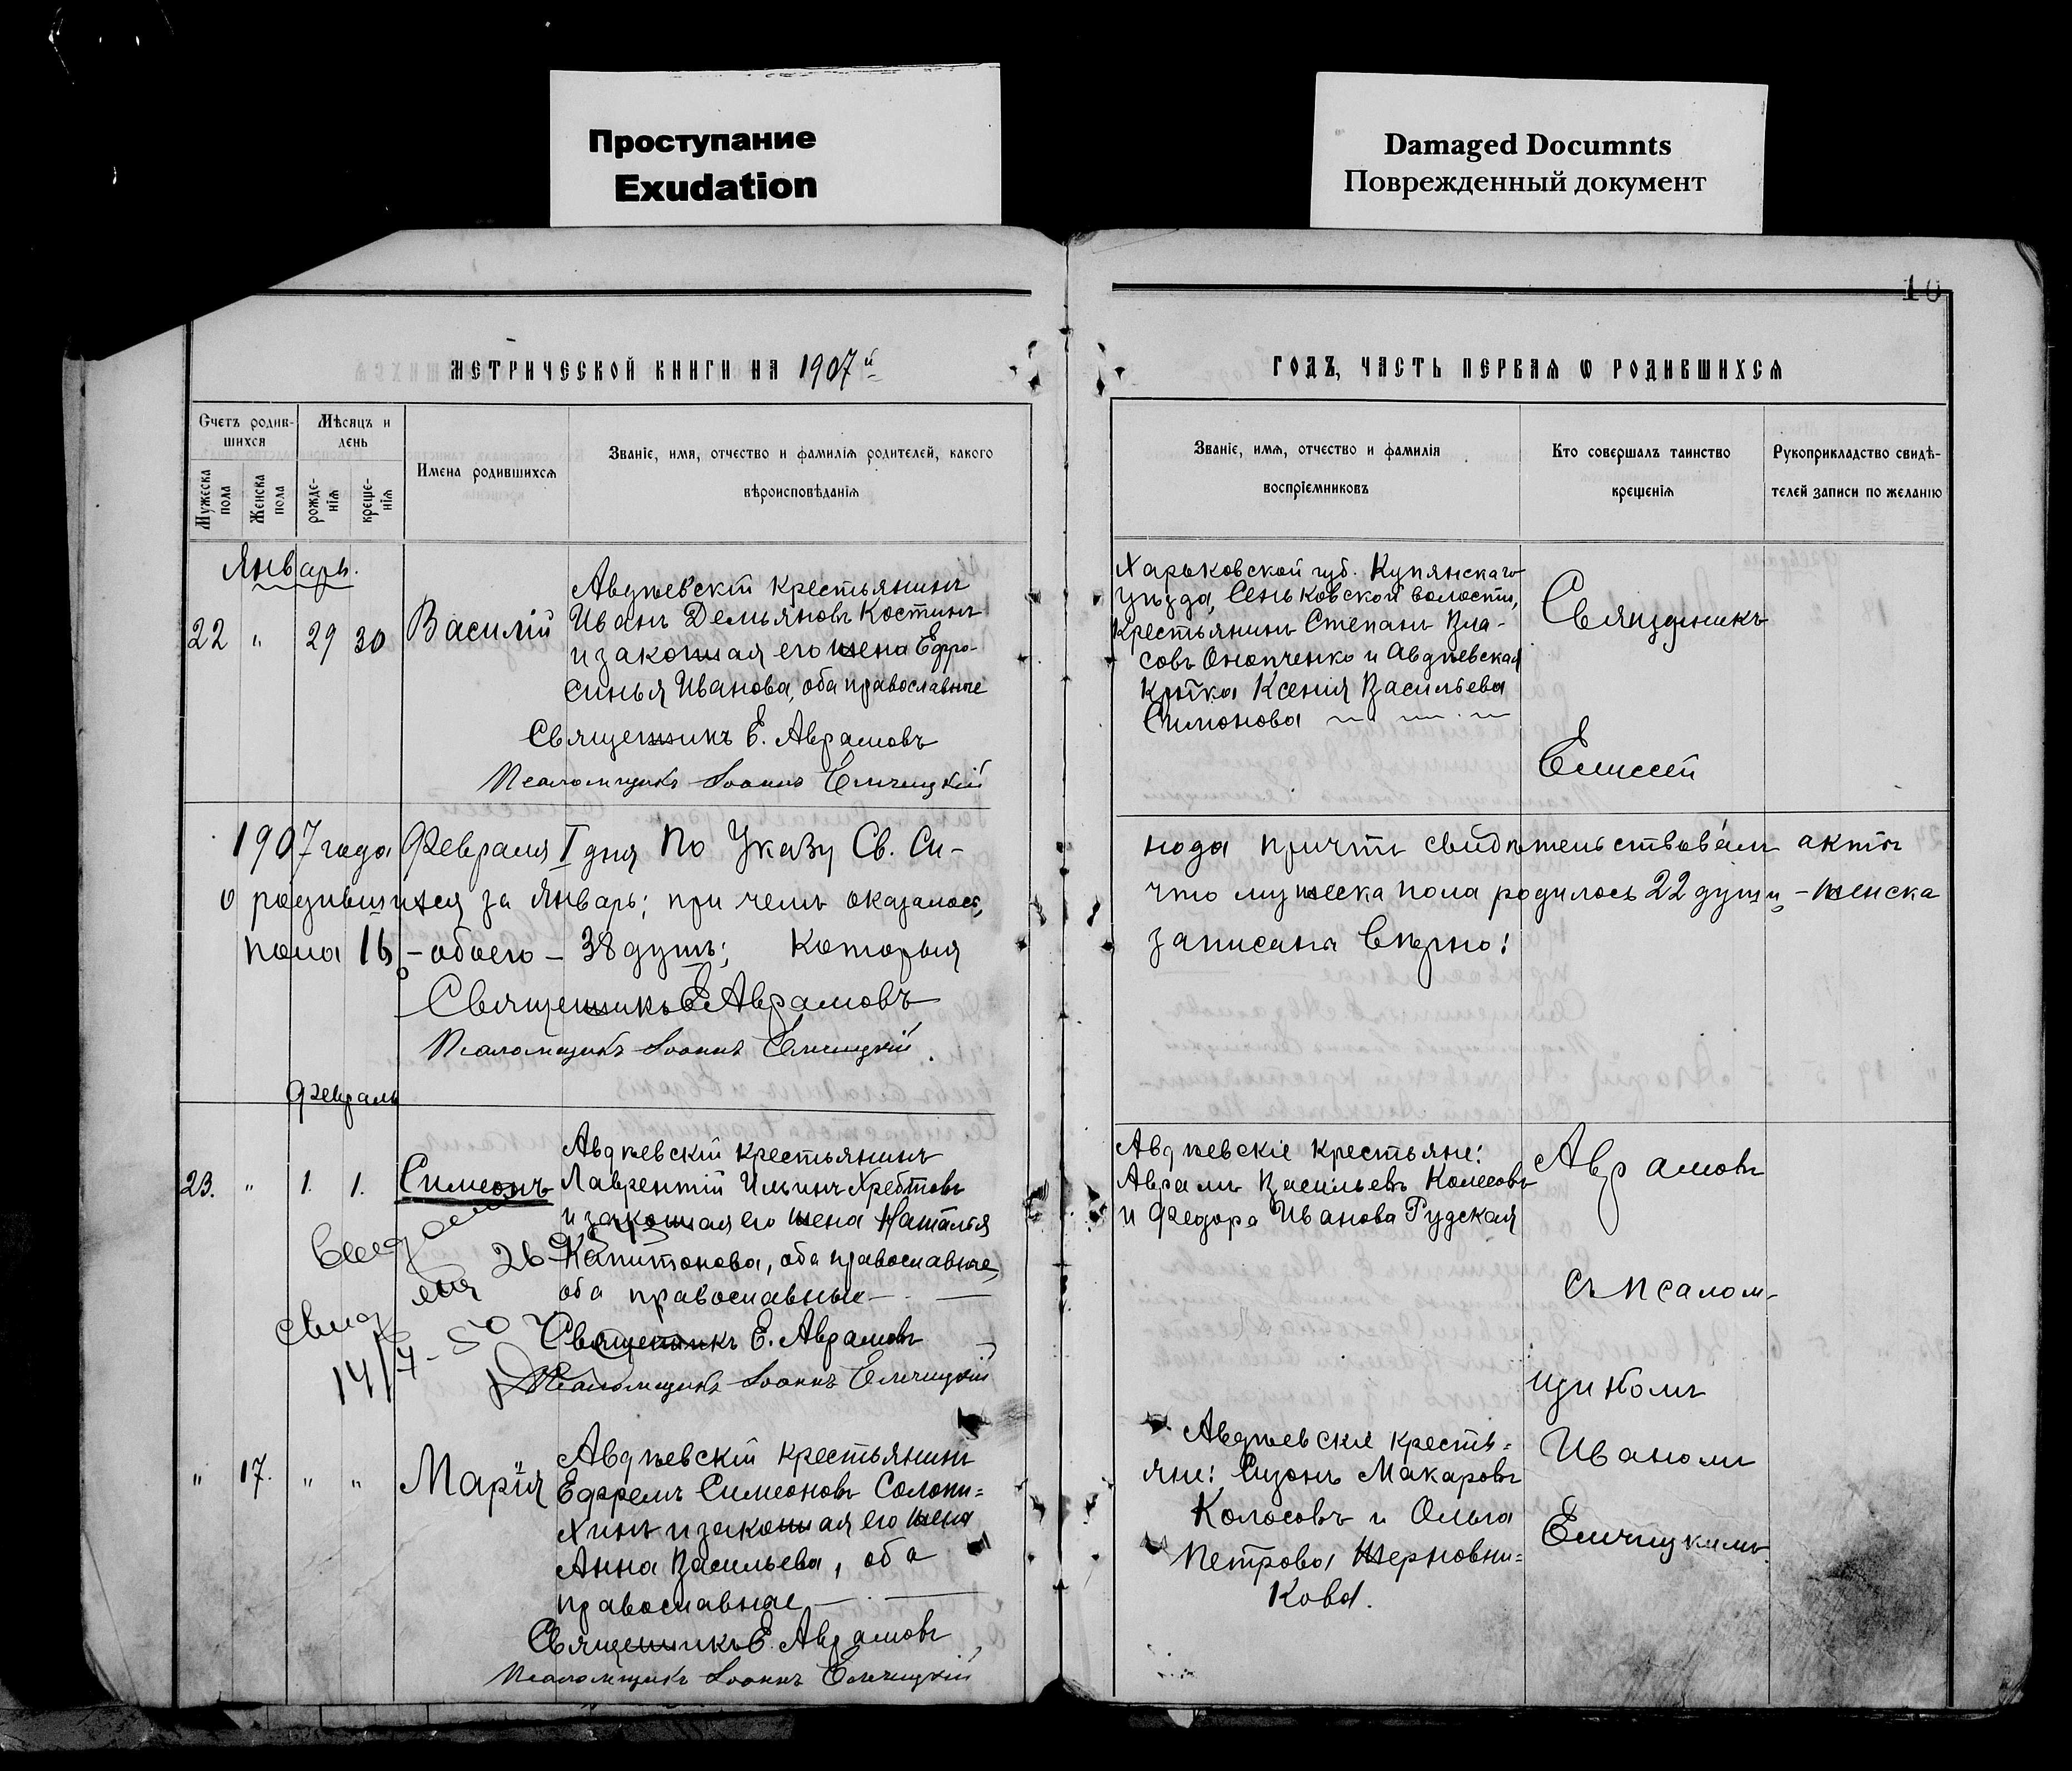 Проступание
Exudation
Damaged Documnts
Поврежденный документ
10
МЕТРИЧЕСКОЙ КНИГИ НА 1907й
ГОДЪ, ЧАСТЬ ПЕРВАЯ Ѡ РОДИВШИХСЯ
Счетъ родив-
шихся
Мужеска
пола
Женска
пола
Мѣсяцъ и
день
рожде-
нія
креще-
нія
Имена родившихся
Званіе, имя, отчество и фамилія родителей, какого
вѣроисповѣданія
Званіе, имя, отчество и фамилія
воспріемниковъ
Кто совершалъ таинство
крещенія
Рукоприкладство свидѣ-
телей записи по желанію
Январь.
22 " 29 30 Василій
Авдѣевскій крестьянинъ
Иванъ Демьяновъ Костинъ
и законная его жена Ефро-
синья Иванова, оба православные
Священникъ Е. Аврамовъ
Псаломщикъ Іоаннъ Ельчицкій
Харьковской губ. Купянскаго
уѣзда, Сеньковской волости,
крестьянинъ Степанъ Вла-
совъ Онопченко и Авдѣевская
Кр-ка Ксенія Васильева
Симонова
Священникъ
Елисей
1907 года Февраля I дня По Указу Св. Си-
нода причтъ свидѣтельствовалъ акты
о родившихся за Январь; при чемъ оказалось,
что мужеска пола родилось 22 души, - женска
пола 16 - обоего - 38 душъ; Которыя
записаны вѣрно!
Священникъ Е. Аврамовъ
Псаломщикъ Іоаннъ Ельчицкій.
Февраль
23. " 1. 1. Симеонъ
Авдѣевскій крестьянинъ
Лаврентій Ильинъ Хребтовъ
и законная его жена Наталья
Капитонова, оба православные,
оба православные
Священникъ Е. Аврамовъ
Псаломщикъ Іоаннъ Ельчицкій
14/4-50
Авдѣевскіе крестьяне:
Аврамъ Васильевъ Колесовъ
и Федора Иванова Рудская
Аврамовъ
съ псалом-
щикомъ
Иваномъ
Ельчицкимъ.
" 17. " " Марія
Авдѣевскій крестьянинъ
Ефремъ Симеоновъ Солопи=
хинъ и законная его жена
Анна Васильева, оба
православные
Священникъ Е. Аврамовъ
Псаломщикъ Іоаннъ Ельчицкій
Авдѣевскіе кресть=
яне: Сизонъ Макаровъ
Колосовъ и Ольга
Петрова Жерновни=
кова.